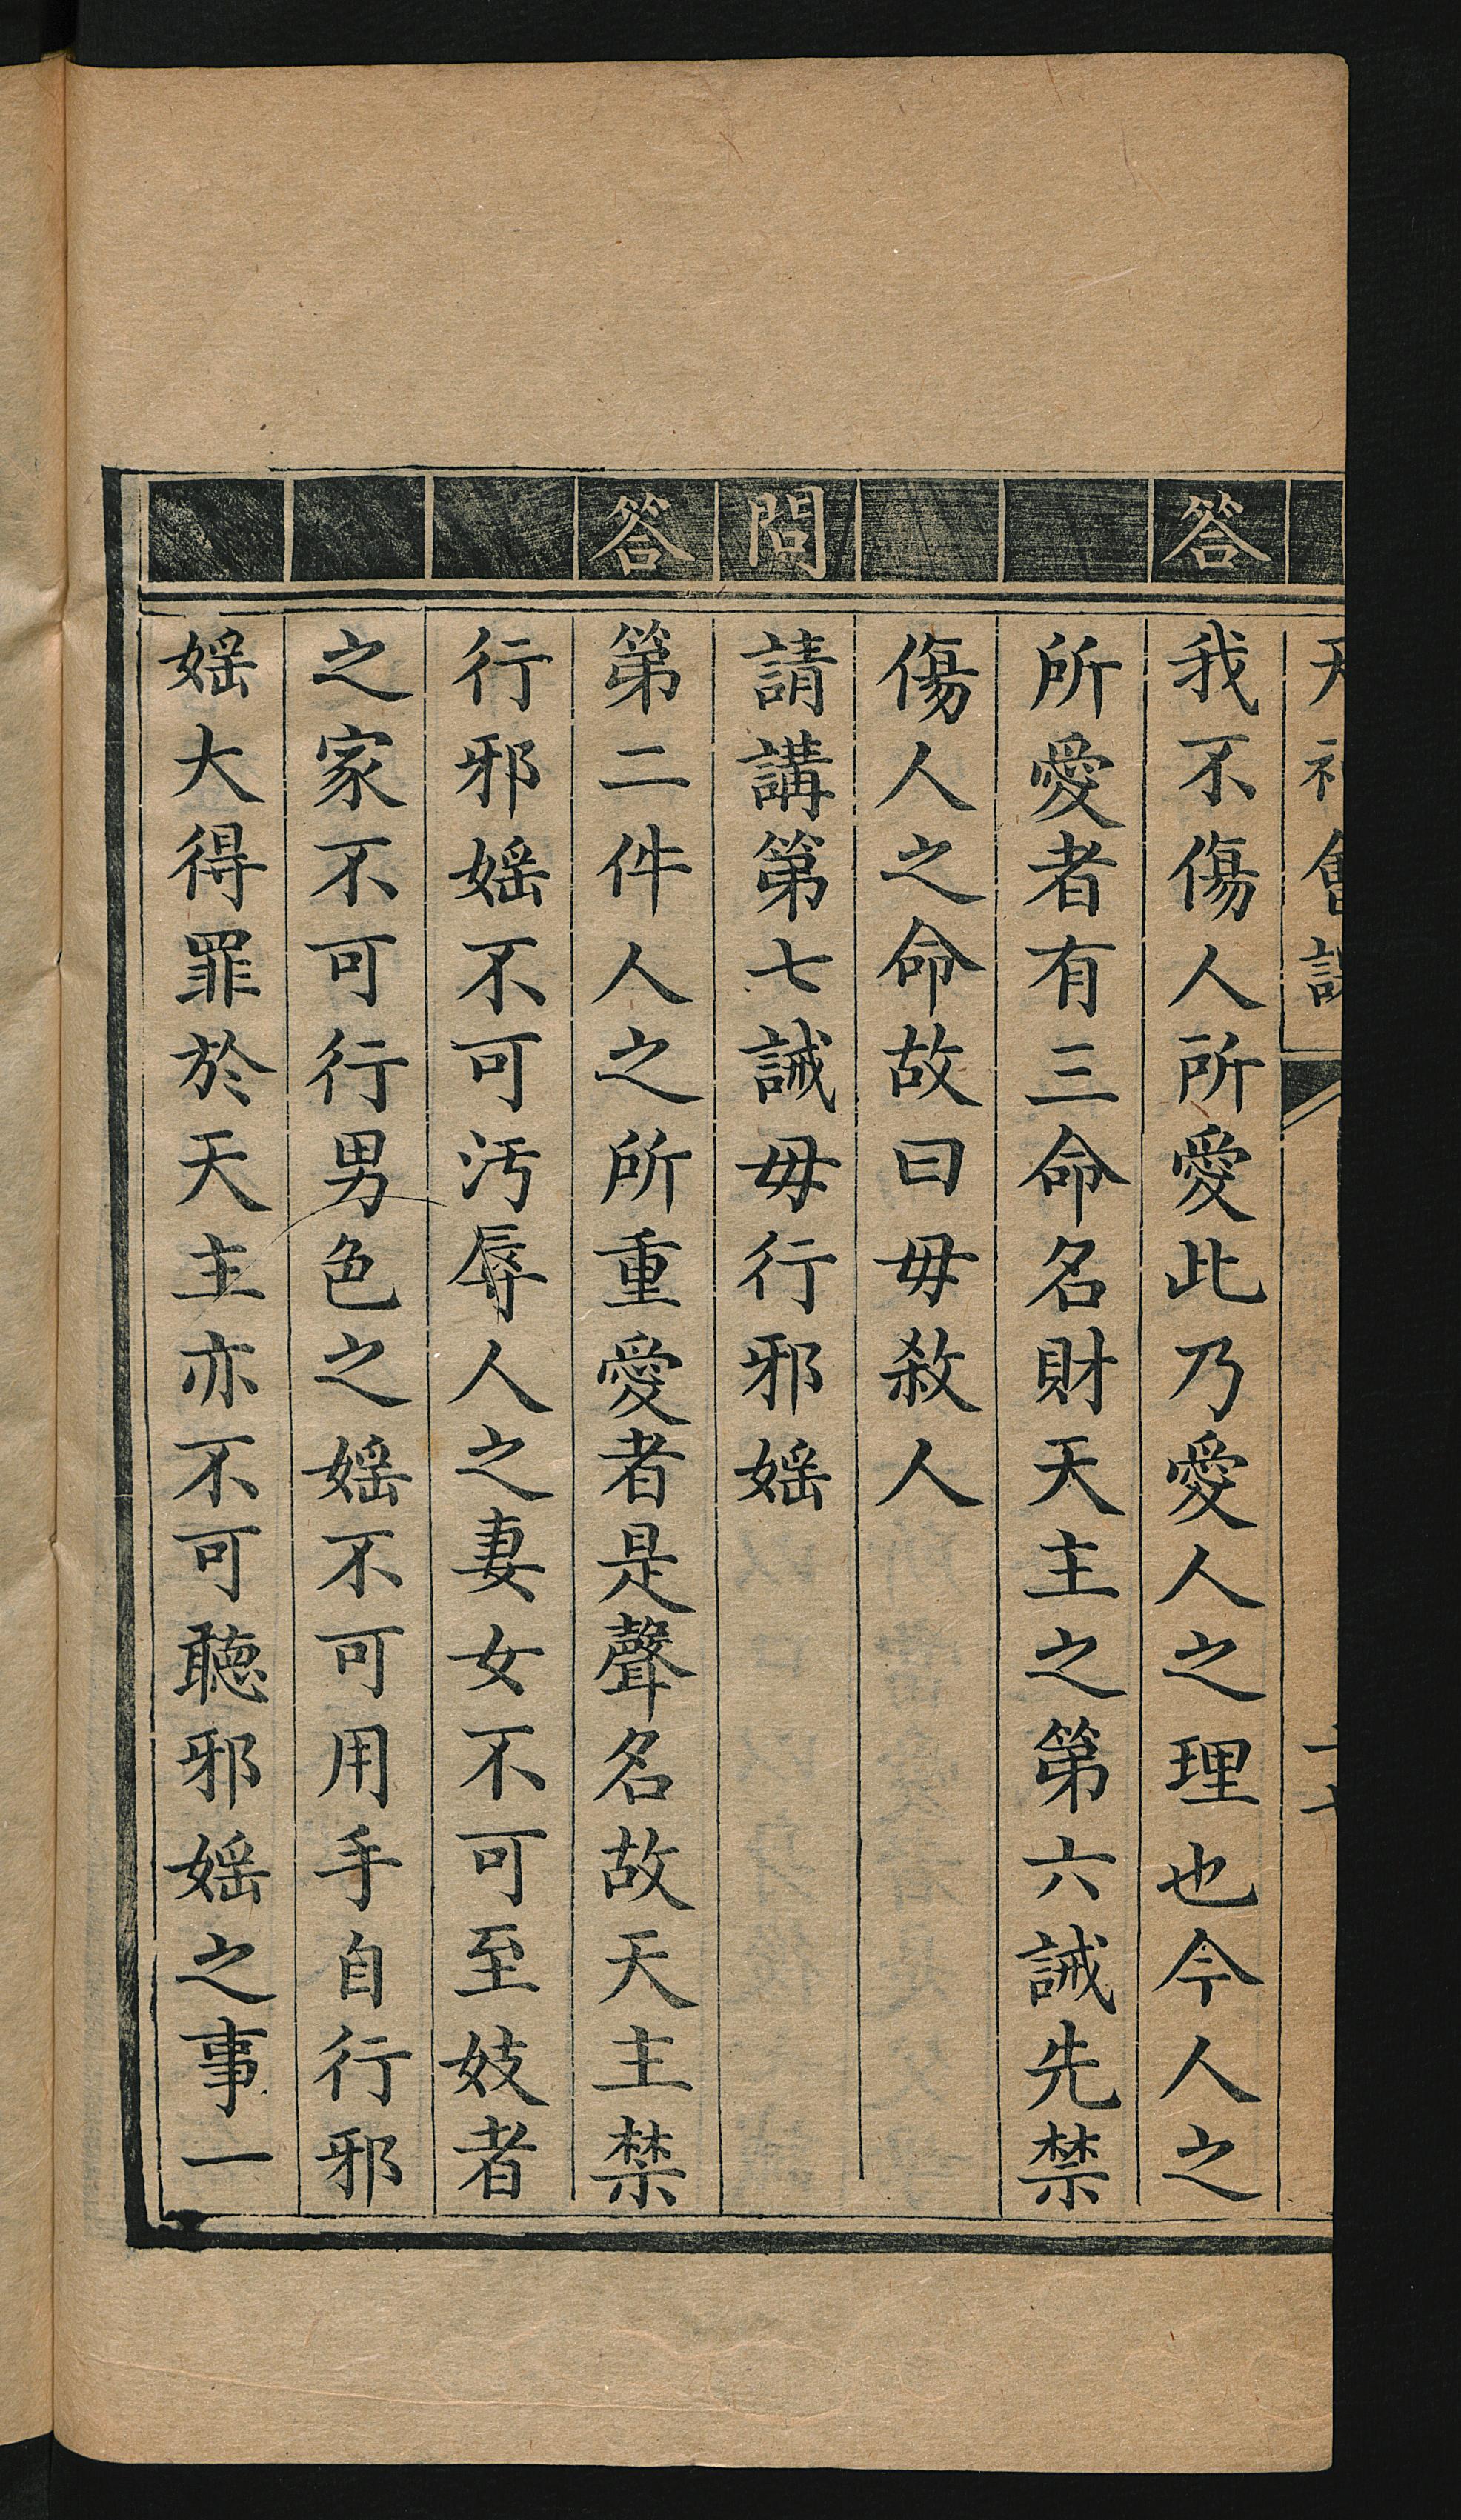 天神會課
答 我不傷人所愛此乃愛人之理也今人之
所愛者有三命名財天主之第六誡先禁
傷人之命故曰毋殺人
問 請講第七誡毋行邪婬
答 第二件人之所重愛者是聲名故天主禁
行邪婬不可汚辱人之妻女不可至妓者
之家不可行男色之婬不可用手自行邪
婬大得罪於天主亦不可聽邪婬之事一